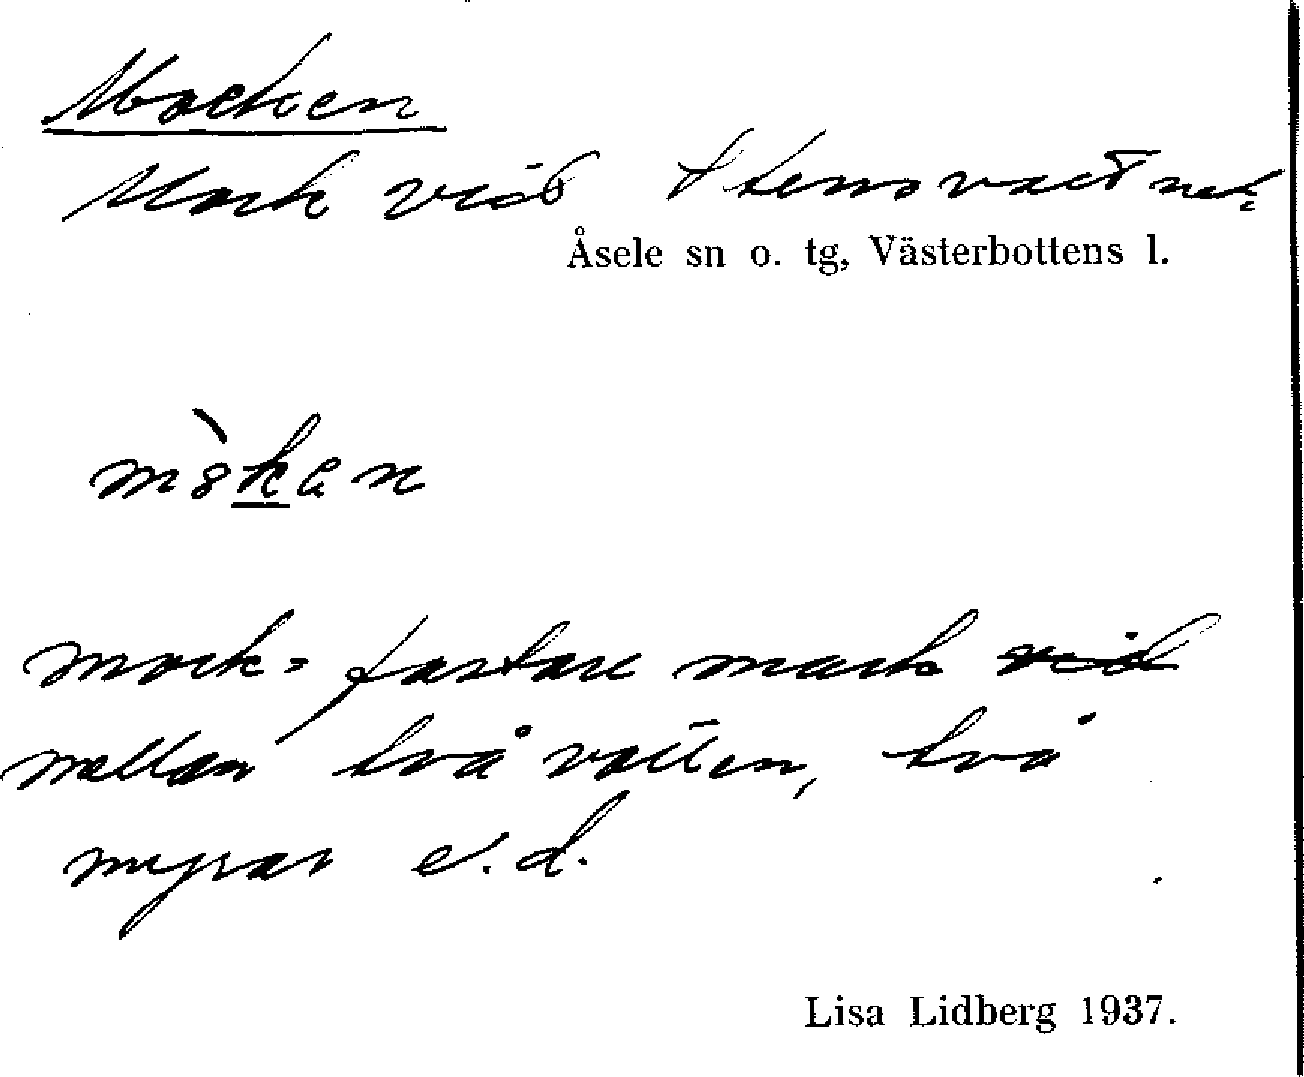 Mocken
Mark vid Stensvattnet.
Åsele sn o. tg, Västerbottens l.
mòkan
mock= fastare mark vid
mellan två vatten, två
myrar e.d.
Lisa Lidberg 1937.